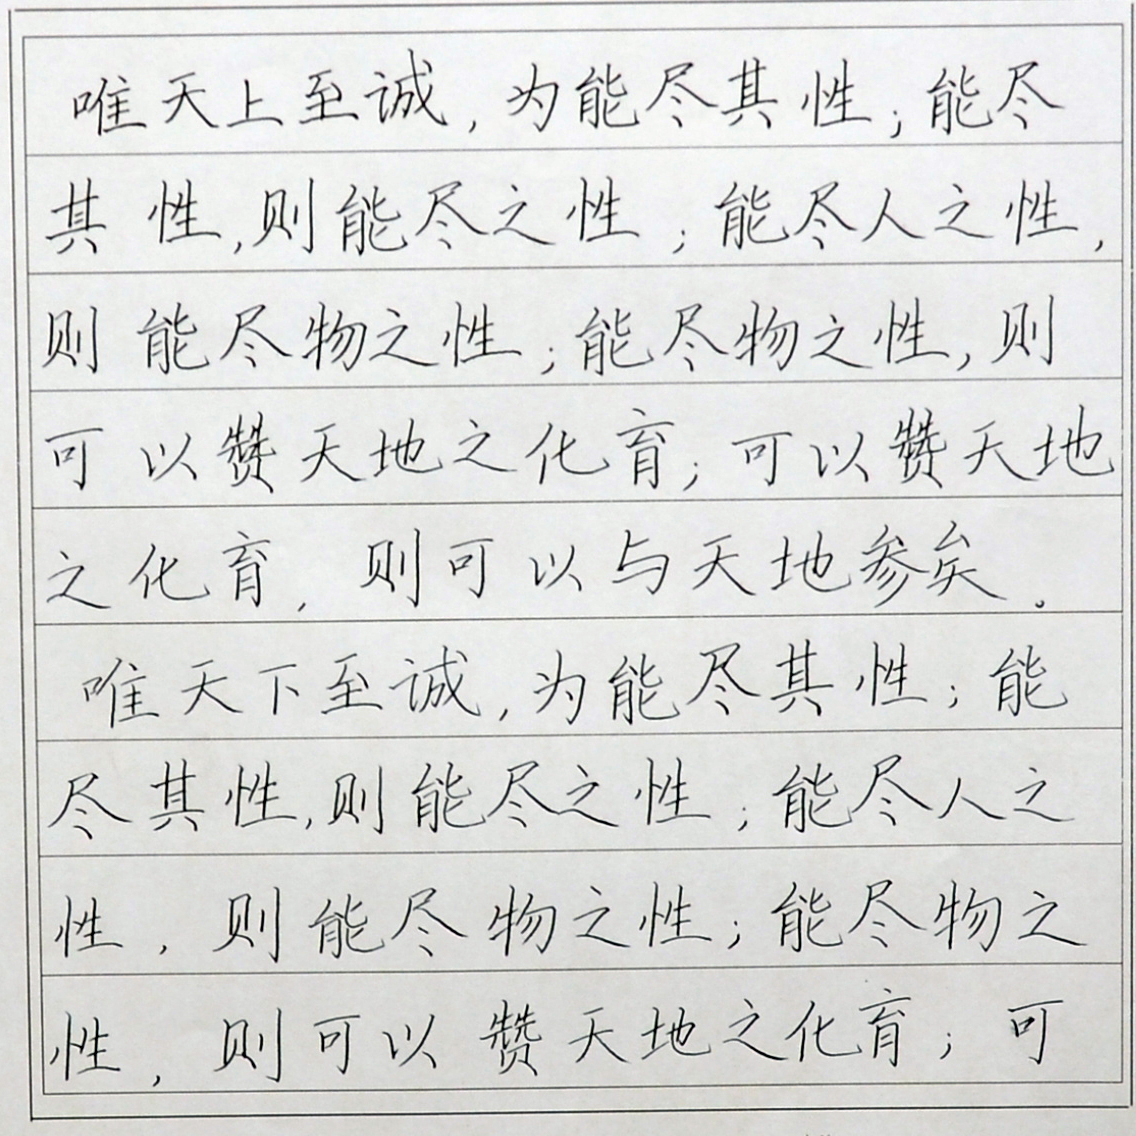 唯天上至诚,为能尽其性;能尽
其性,则能尽之性;能尽人之性,
则能尽物之性;能尽物之性,则
可以赞天地之化育;可以赞天地
之化育,则可以与天地参矣。
唯天下至诚,为能尽其性;能
尽其性,则能尽之性;能尽人之
性,则能尽物之性;能尽物之
性,则可以赞天地之化育;可